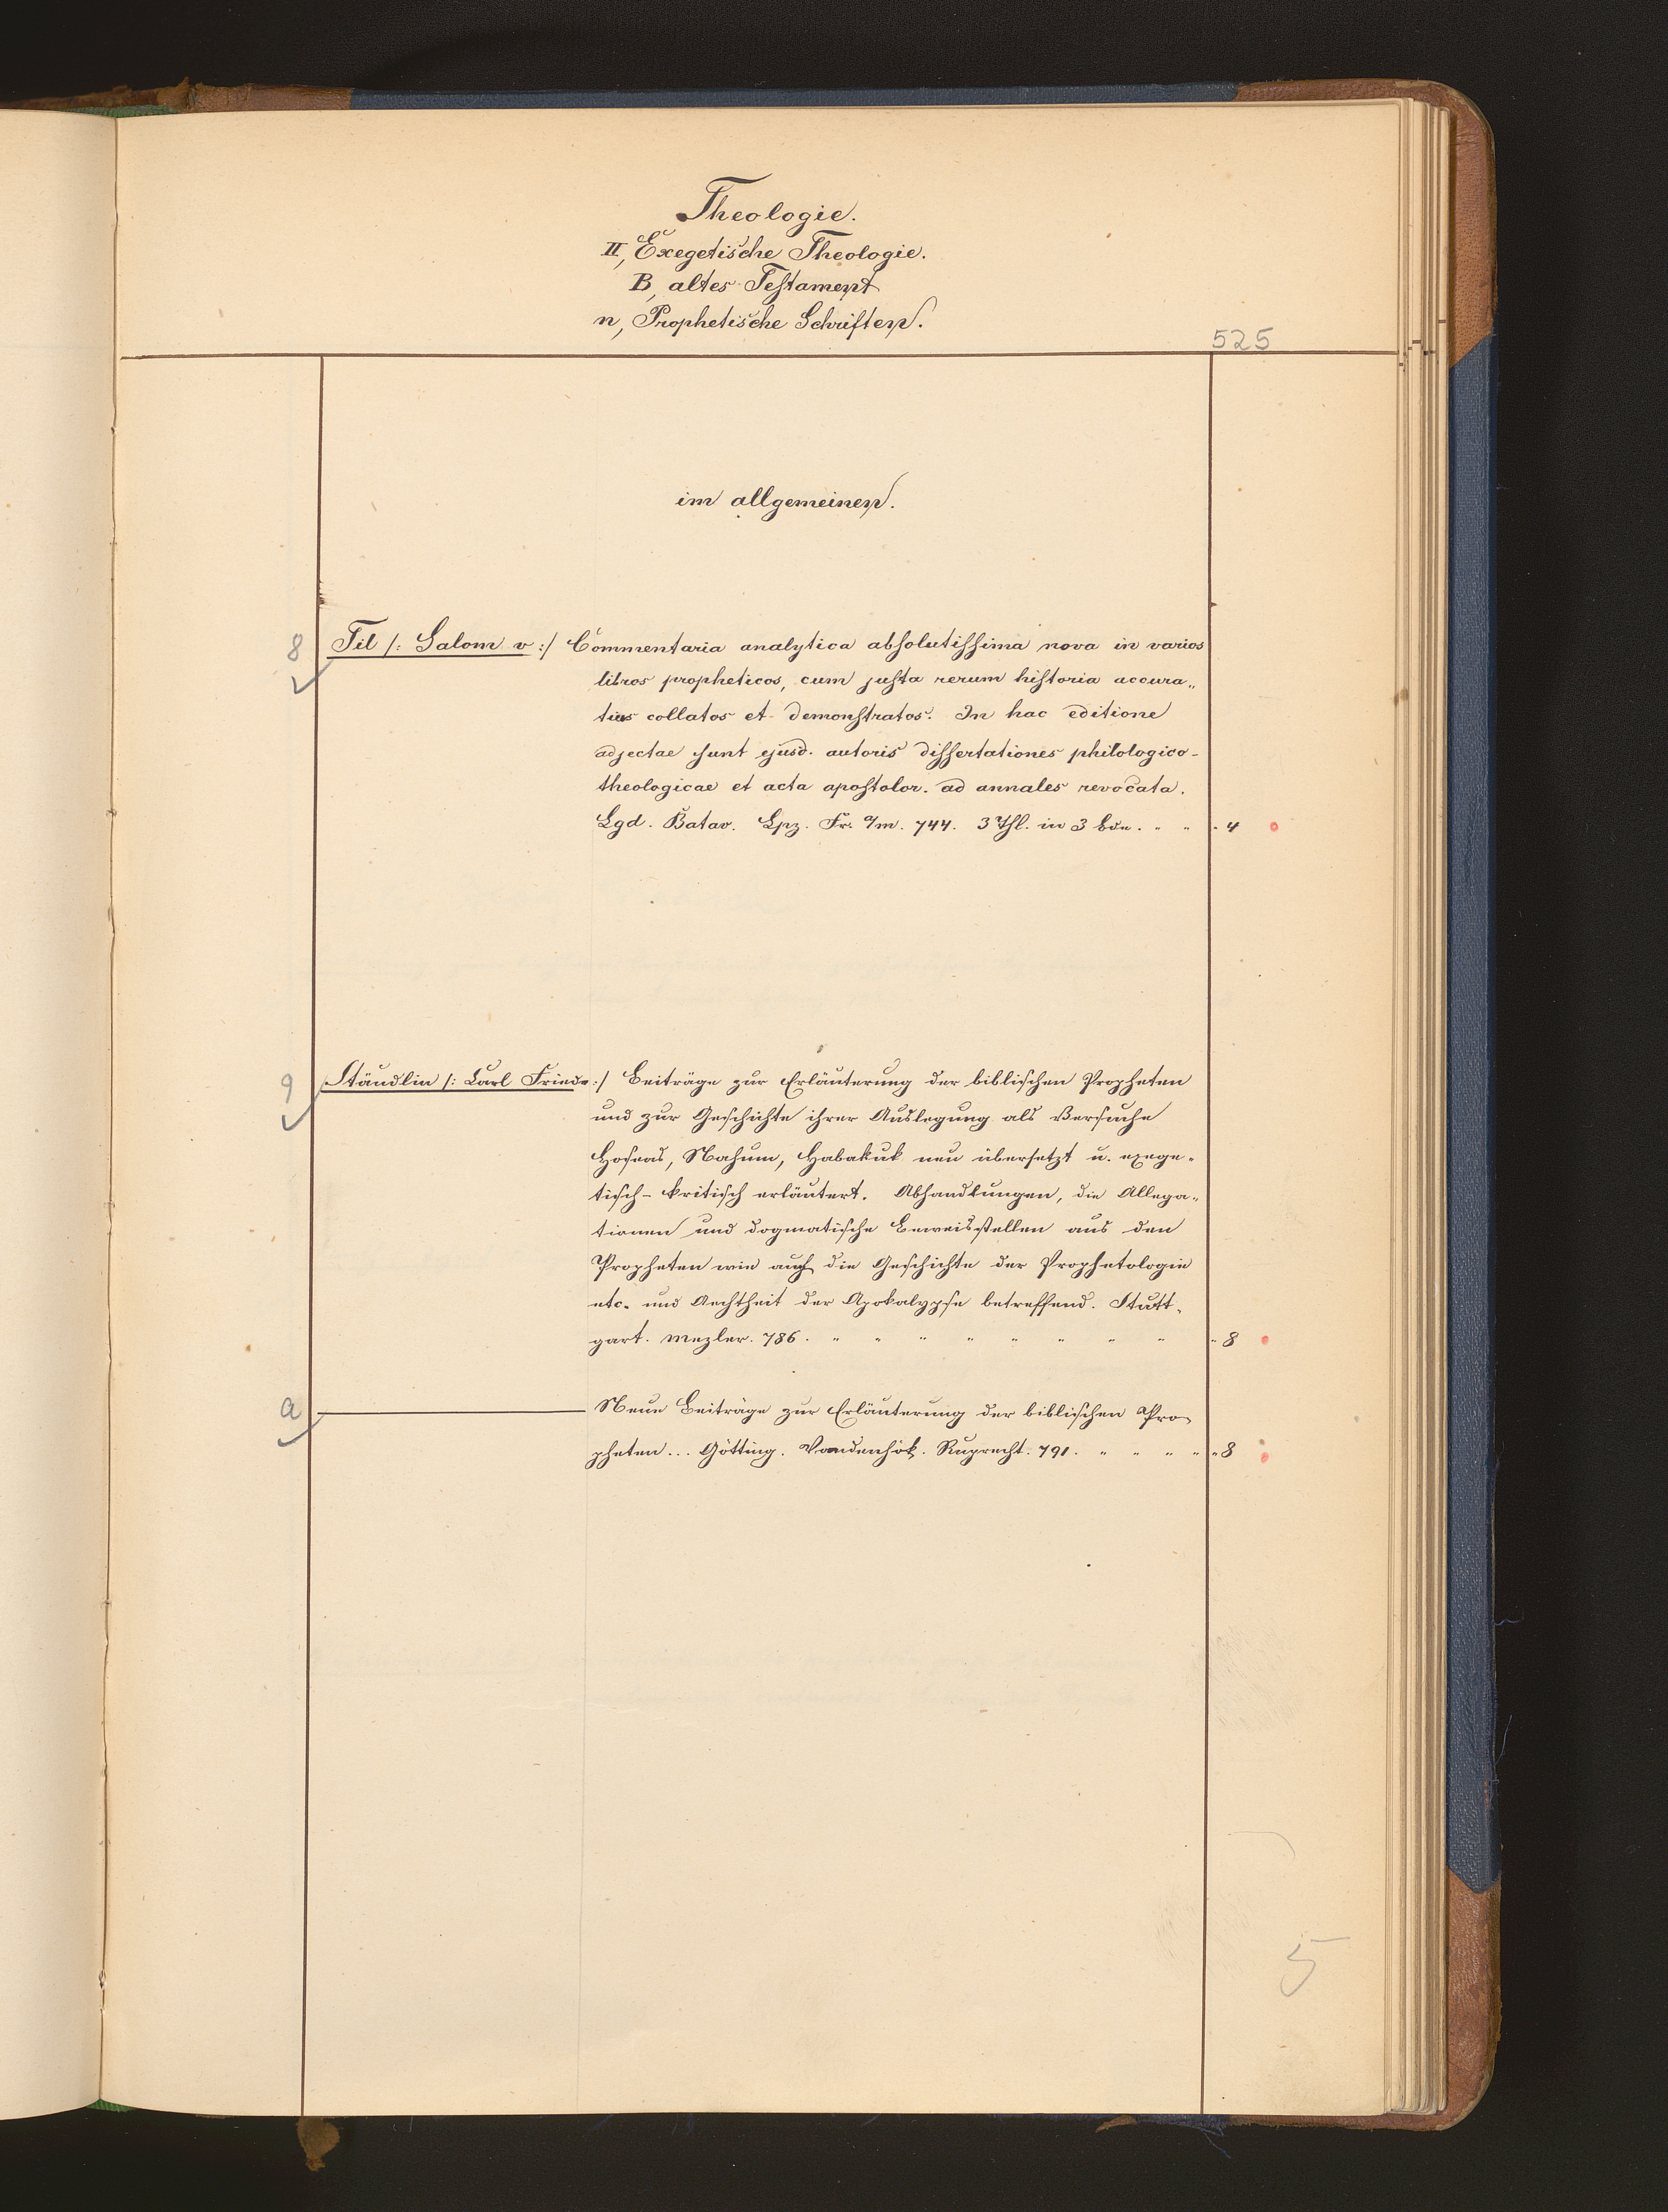 Theologie.
II, Exegetische Theologie.
B, altes Testament
n, Prophetische Schriften.
525
im allgemeinen.
8 Til /: Salom v :/ Commentaria analytica absolutissima nova in varios
libros propheticos, cum justa rerum historia accura„
tius collatos et demonstratos. In hac editione
adjectae sunt ejusd. autoris dissertationes philologico-
theologicae et acta apostolor. ad annales revocata.
Lgd. Batav. Lpz. Fr. a/m. 744. 3 Thl. in 3 Bdn. " " " 4
9 Stäudlin /: Carl Friedr :/ Beiträge zur Erläuterung der biblischen Propheten
und zur Geschichte ihrer Auslegung als Versuche
Hoseas, Nahum, Habakuk neu übersetzt u. exege-
tisch-kritisch erläutert. Abhandlungen, die Allega-
tionen und dogmatische Beweisstellen aus den
Propheten wie auch die Geschichte der Prophetologie
etc. und Aechtheit der Apokalypse betreffend. Stutt-
gart. Mezler. 786. " " " " " " " " " 8
a Neue Beiträge zur Erläuterung der biblischen Pro-
pheten... Götting. Vandenhök. Ruprecht. 791. " " " " " 8
5